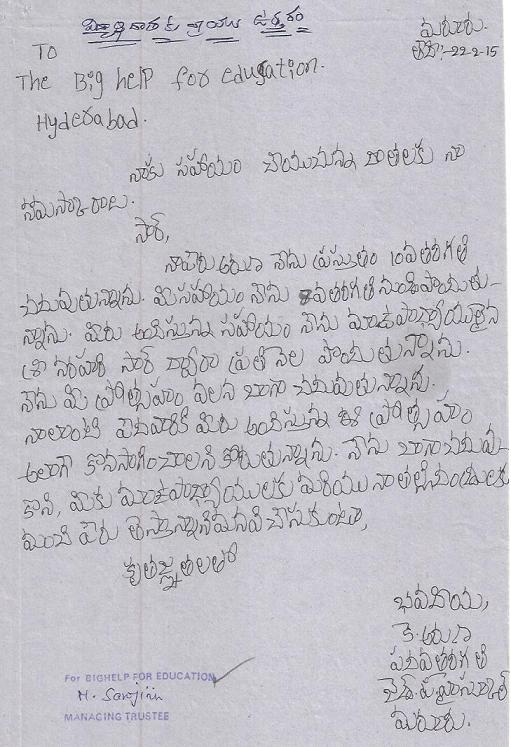 విద్యాదాతకు వ్రాయు ఉత్తరం
మరూరు.
తేది:-22-2-15
TO
The Big help for education.
Hyderabad.
నాకు సహాయం చేయుచున్న దాతలకు నా
నమస్కారాలు.
సార్,
నాపేరు అరుణ నేను ప్రస్తుతం 10వతరగతి
చదువుతున్నాను. మీసహాయం నేను 8వతరగతి నుండి పొందుతు-
న్నాను. మీరు అందిస్తున్న సహాయం నేను మా ఉపాధ్యాయులైన
శ్రీ నరహరి సార్ ద్వారా ప్రతి నెల పొందుతున్నాను.
నేను మీ ప్రోత్సాహం వలన బాగా చదువుతున్నాను.
నాలాంటి పేదవారికి మీరు అందిస్తున్న ఈ ప్రోత్సాహం
అలాగే కొనసాగించాలని కోరుతున్నాను. నేను బాగా చదువు-
కొని, మీకు మా ఉపాధ్యాయులకు మరియు నా తల్లిదండ్రులకు
మంచి పేరు తెస్తానని మనవి చేసుకుంటూ,
కృతజ్ఞతలతో
భవదీయ,
కె. అరుణ
పదవతరగతి
మరూరు.
For BIGHELP FOR EDUCATION
M. Sarojini
MANAGING TRUSTEE